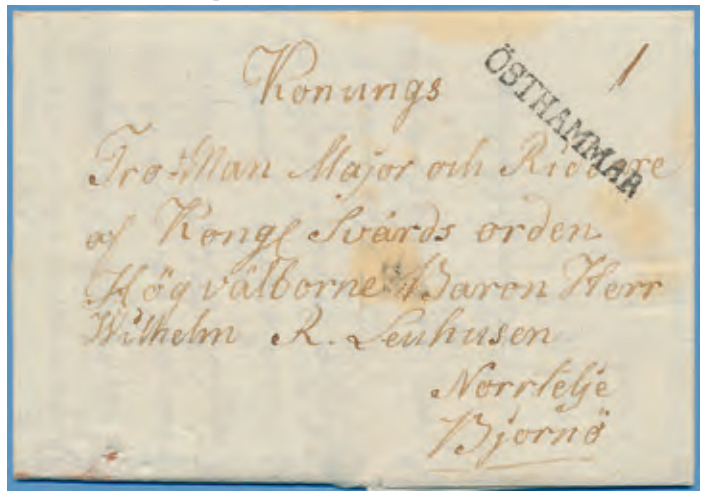 Konungs
ÖSTHAMMAR
1
Tro-Man Major och Riddare
af Kongl Svärds orden
Högvälborne Baron Herr
Wilhelm R. Leuhusen
Norrtelje
Björnö